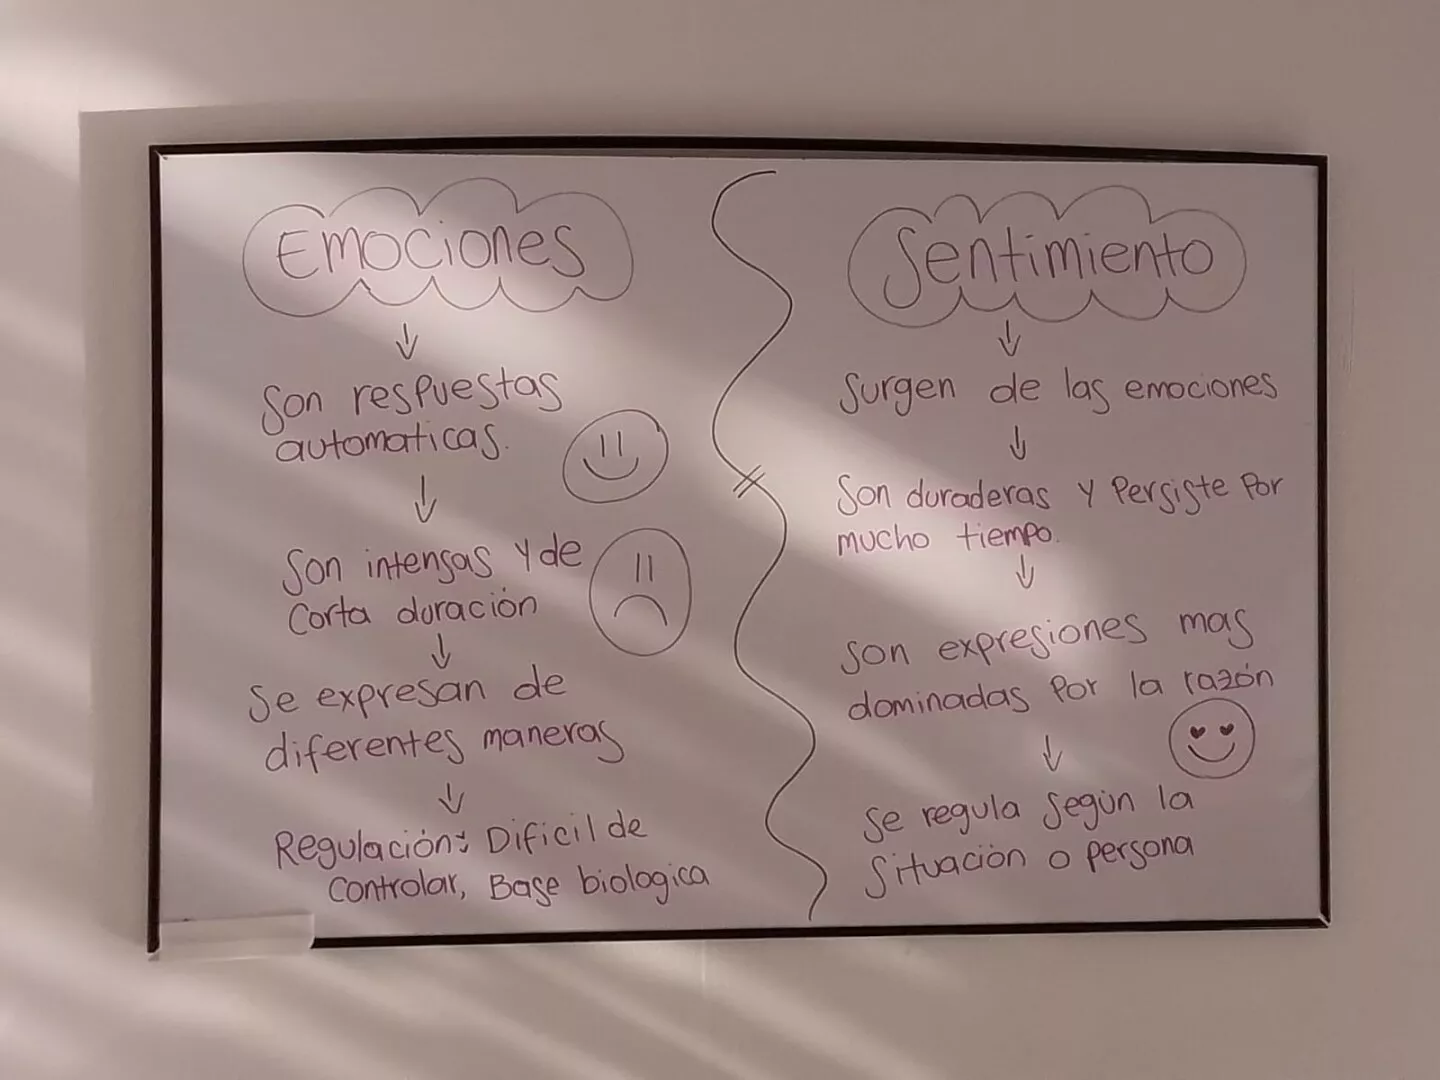 Emociones
Son respuestas
automaticas.
Son intensas y de
Corta duración
Se expresan de
diferentes maneras
Regulación: Dificil de
Controlar, Base biologica
Sentimiento
Surgen de las emociones
Son duraderas y Persiste Por
mucho tiempo.
Son expresiones mas
dominadas Por la razón
Se regula Según la
Situación o persona